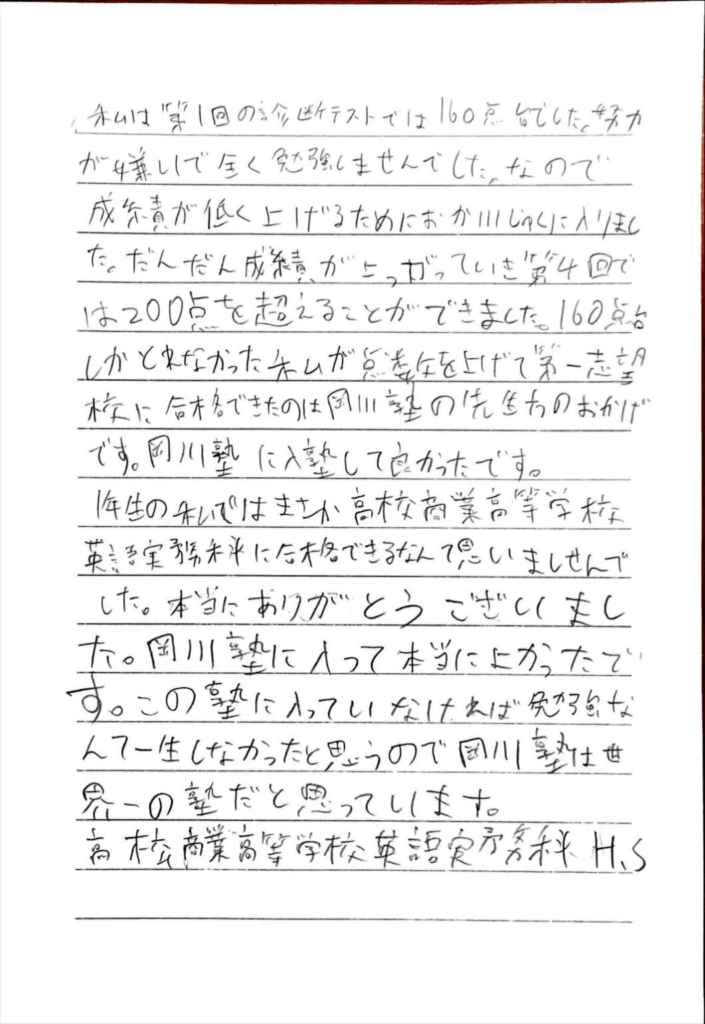 私は第1回の診断テストでは160点台でした。努力
が嫌いで全く勉強しませんでした。なので
成績が低く上げるためにおか川じゅくに入りまし
た。だんだん成績が上っがっていき第4回で
は200点を超えることができました。160点台
しかとれなかった私が点数を上げて第一志望
校に合格できたのは岡川塾の先生方のおかげ
です。岡川塾に入塾して良かったです。
1年生の私ではまさか高校商業高等学校
英語実務科に合格できるなんて思いましせんで
した。本当にありがとうございまし
た。岡川塾に入って本当によかったで
す。この塾に入っていなければ勉強な
んて一生しなかったと思うので岡川塾は世
界一の塾だと思っています。
高校商業高等学校英語実務科 H.S